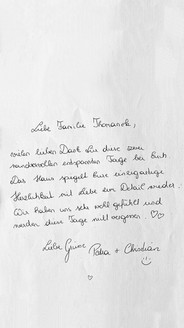 Liebe Familie Thomanek,
vielen lieben Dank für diese zwei
wundervollen entspannten Tage bei Euch
Das Haus spiegelt Eure einzigartige
Herzlichkeit mit Liebe zum Detail wieder.
Wir haben uns sehr wohl gefühlt und
werden diese Tage nicht vergessen. ♡♡
Liebe Grüsse Petra + Christian